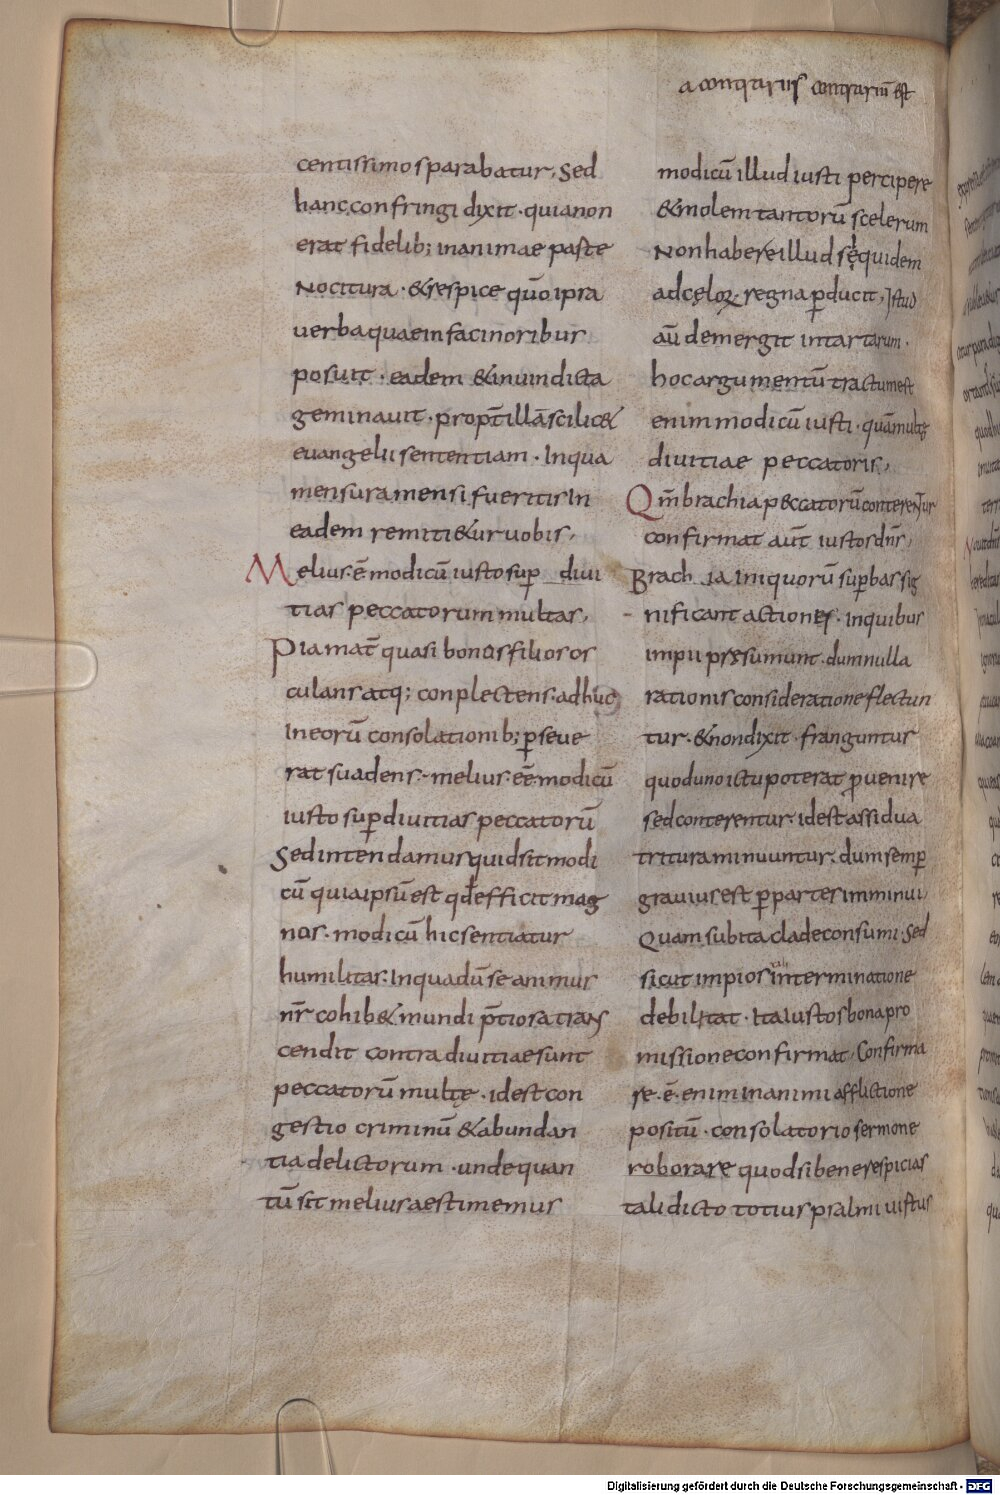 a contrariis contrariū est
centissimos parabatur, Sed
hanc confringi dixit · quia non
erat fidelib; in animae parte
Nocitura · & respice quō ipsa
uerba quae in facinoribus
posuit · eadem & in uindicta
geminauit · propt̄ illā scilic&
euangelii sententiam · In qua
mensura mensi fueritis In
eadem remiti&ur uobis,
Melius · ē modicū iusto sup diui
tias peccatorum multas,
Pia mat̄ quasi bonos filios os
culans atq; conplectens · adhuc
In eorū consolationib; perseue
rat suadens · melius eē modicū
iusto sup diuitias peccatorū
Sed intendamus quid sit modi
cū quia ipsū est qđ efficit mag
nos · modicū hic sentiatur
humilitas · In qua dū se animus
nr̄ cohib& mundi p̄tiosa trans
cendit contra diuitiae sunt
peccatorū multę · id est con
gestio criminū & abundan
tia delictorum · unde quan
tū sit melius aestimemus
modicū illud iusti percipere
& molem tantorū scelerum
Non habere illud sęquidem
ad cęloꝝ regna perducit, Istud
aū demergit in tartarum ·
hoc argumentū tractum est
enim modicū iusti · quā multę
diuitiae peccatoris,
Qm̄ brachia p&ccatorū conterentur
confirmat aut̄ iustos dn̄s,
Brachia iniquorū supbas sig
nificant actiones · in quibus
impii presumunt · dum nulla
rationis consideratione flectun
tur · & non dixit · franguntur
quod uno ictu poterat puenire
sed conterentur · id est assidua
tritura minuuntur · dum semp
grauius est p partes imminui
Quam subita clade consumi · Sed
sicut impios interminatione
debilitat · Ita iustos bona pro
missione confirmat, Confirma
re · ē · enim in animi afflictione
positū · consolatorio sermone
roborare quod si bene respicias
tali dicto totius psalmi uirtus
Digitalisierung gefördert durch die Deutsche Forschungsgemeinschaft - DFG